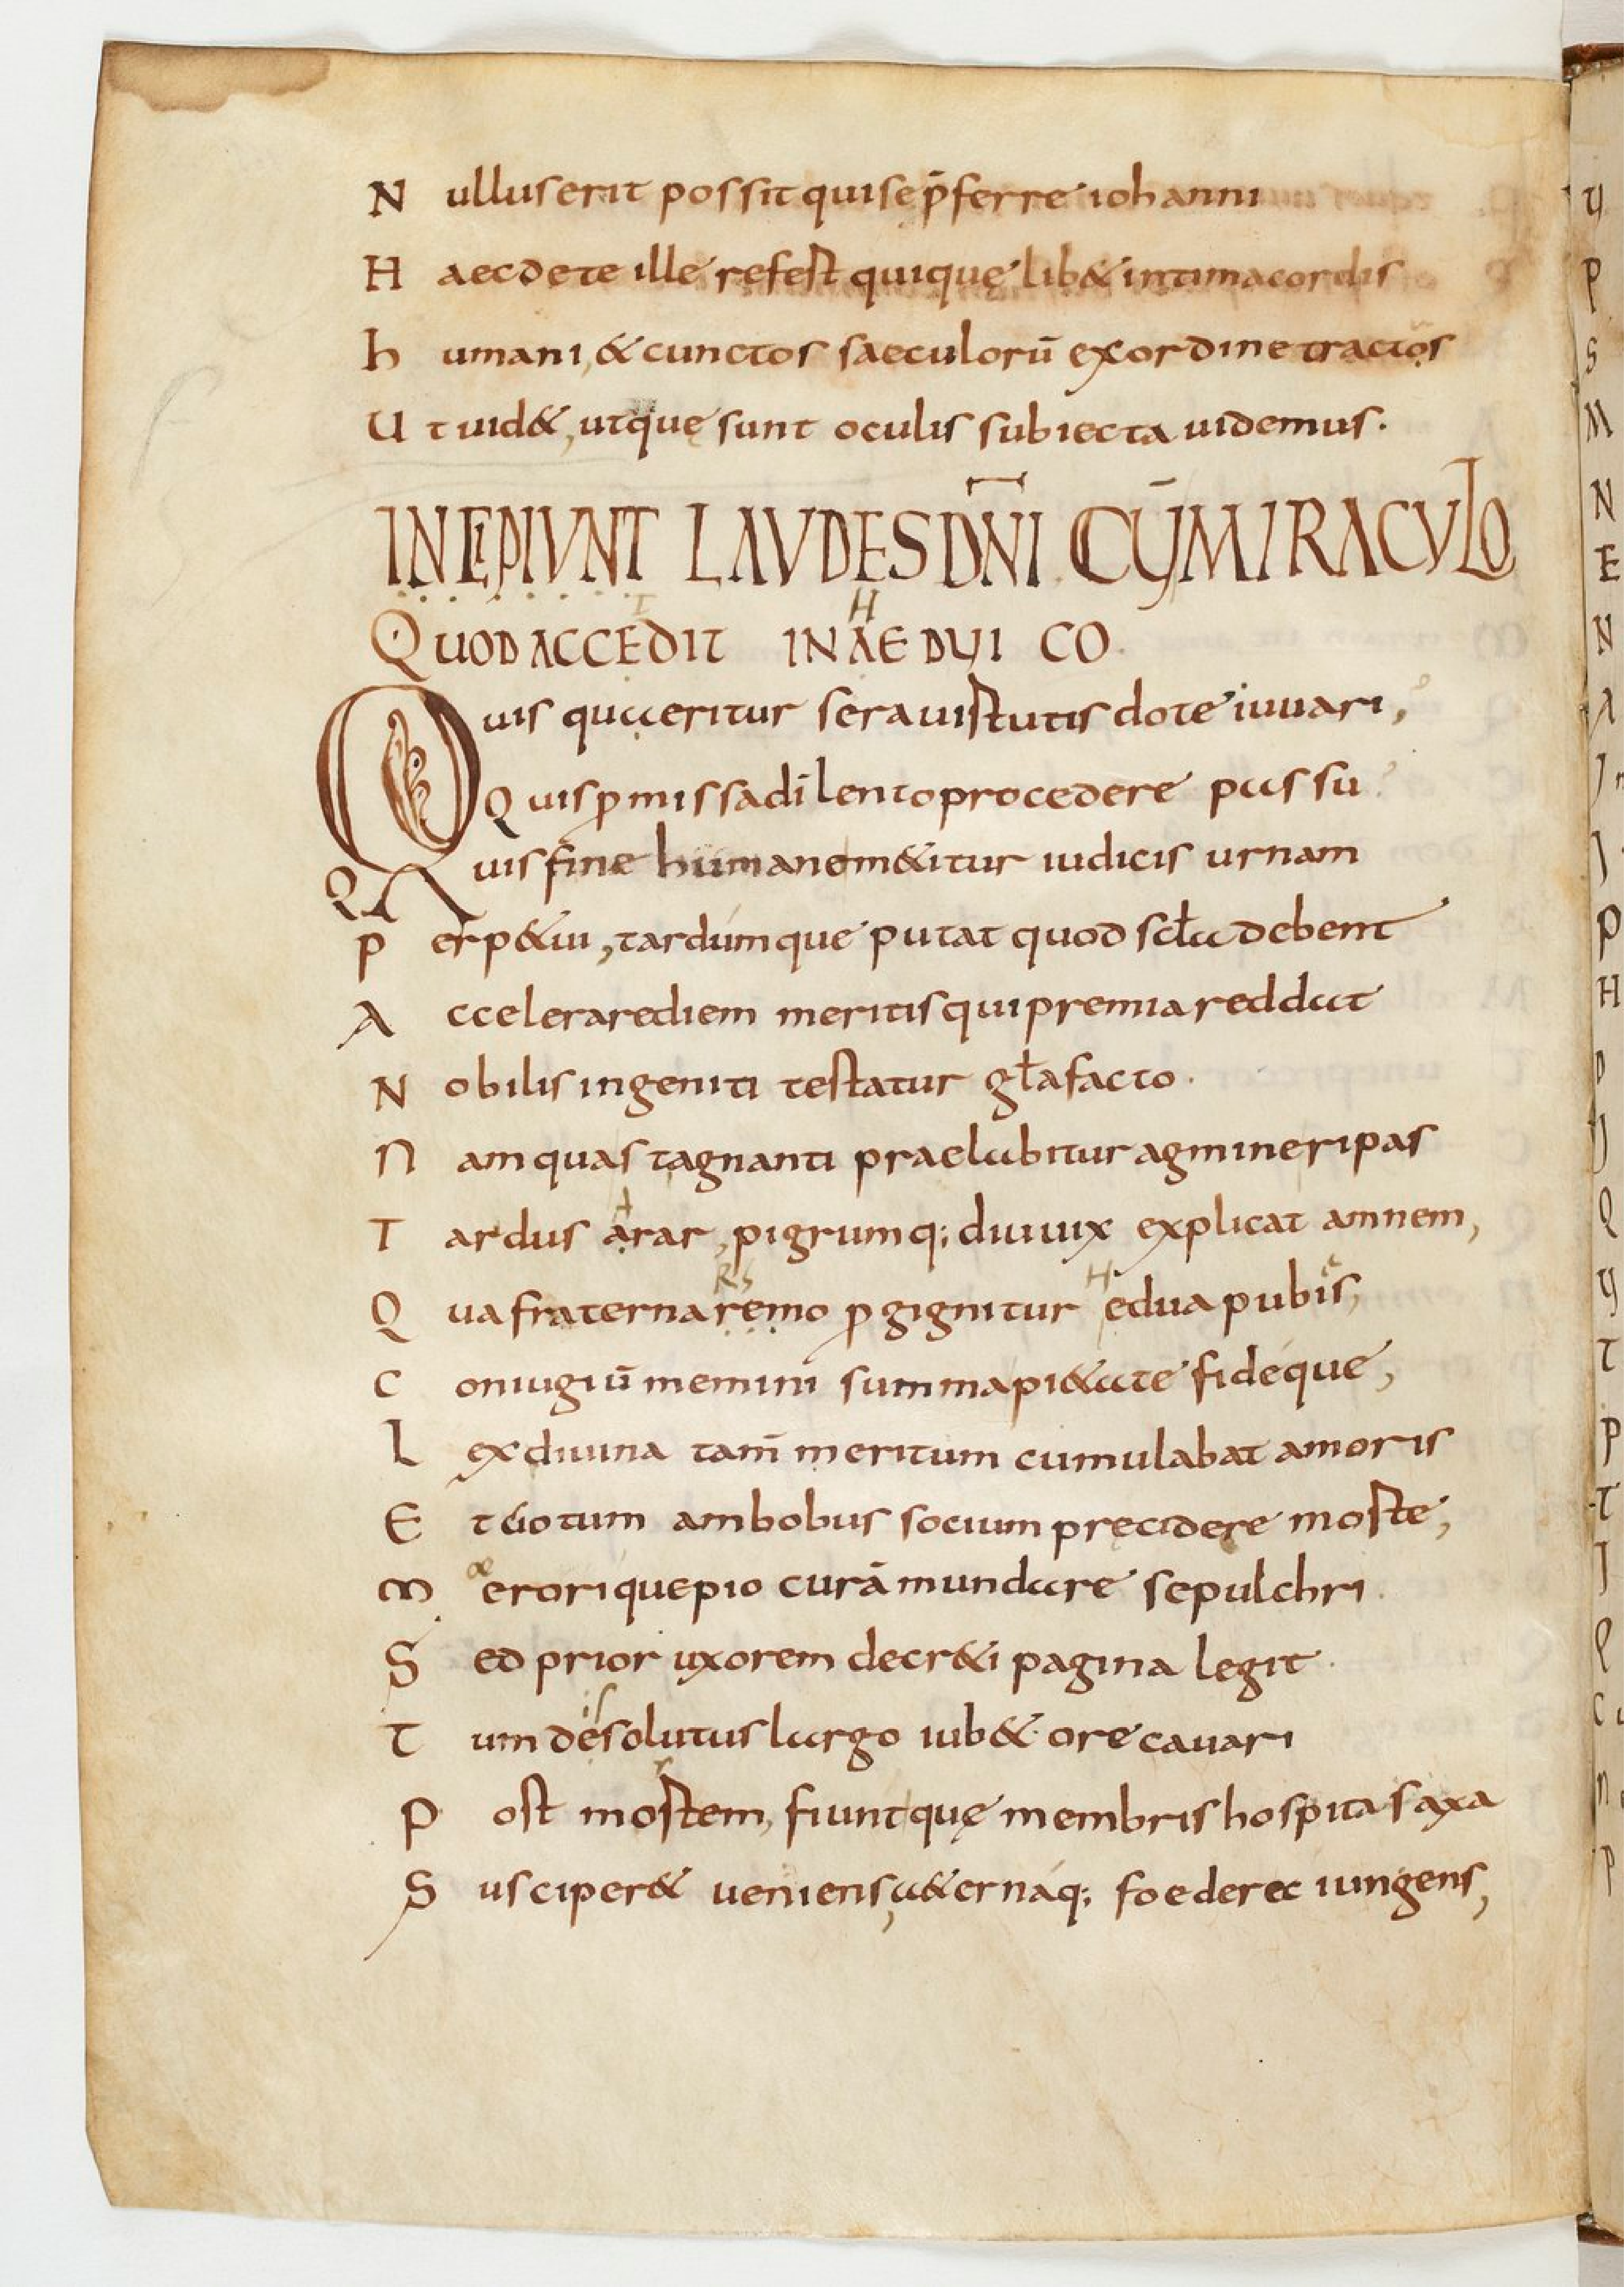 N ulluserit possit quisep̄ferre iohanni
H aecdete ille refest quique̜ lib& intimacordis
h umani, & cunctos saeculorū exordine tractos
U t uid&, utque̜ sunt oculis subiecta uidemus.
INCIPIUNT LAVDES DN̄I CŪ MIRACULO
QUOD ACCEDIT IN AEDUI CO
Quis quaeritur sera uirtutis dote iuuari,
Q uis p̱missadi lento procedere passu
Q uis sine humanom&itur iudicis urnam
P erp&ui, tardumque putat quod sc̄ła debent
A ccelerarediem meritisquipremia reddat
N obilis ingeniti testatur gła facto.
N am quas tagnanti praelabitur agmineripas
T ardus arar, pigrumq; diuuix explicat amnem,
Q uafraternaremo p̱gignitur edua pubis,
C oniugiū memini summapi&ate fideque,
L exdiuina tam̄ meritum cumulabat amoris
E t uotum ambobus socium pręcidere morte,
M erorique pio curā mundare sepulchri.
S ed prior uxorem decr&i pagina legit.
T um desolutus largo iub& ore cauari
P ost mortem, fiuntque̜ membris hospita saxa
S usciper& ueniens, a&ernaq; foedere iungens,
H
A
RS
H
e
is
r
y
P
S
M
N
E
N
A
P
H
D
J
Q
y
T
P
T
J